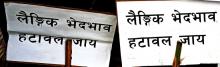 लैङ्गिक भेदभाव
हटावल जाय
लैङ्गिक भेदभाव
हटावल जाय